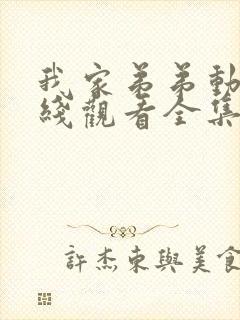 我家弟弟動
綫觀看全集
許杰東與美食